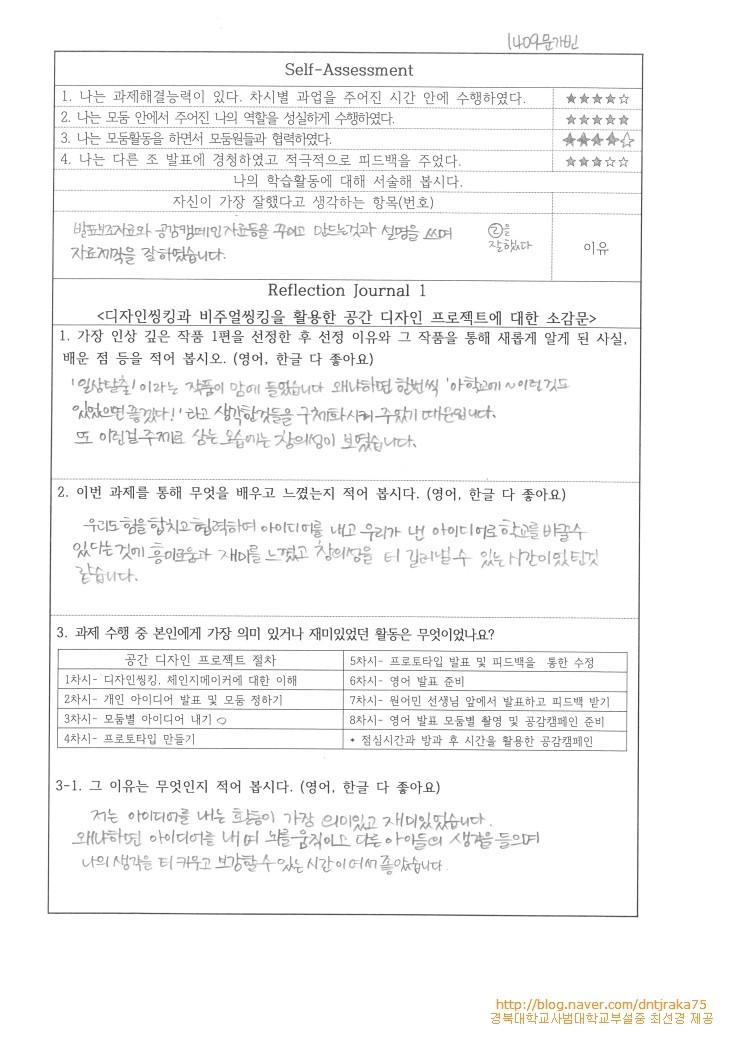 1409문가빈
Self-Assessment
1. 나는 과제해결능력이 있다. 차시별 과업을 주어진 시간 안에 수행하였다. ★★★★☆
2. 나는 모둠 안에서 주어진 나의 역할을 성실하게 수행하였다. ★★★★★
3. 나는 모둠활동을 하면서 모둠원들과 협력하였다. ★★★★☆
4. 나는 다른 조 발표에 경청하였고 적극적으로 피드백을 주었다. ★★★☆☆
나의 학습활동에 대해 서술해 봅시다.
자신이 가장 잘했다고 생각하는 항목(번호)
발표보조자료와 공감캠페인자료등을 꾸미고 만드는것과 설명을 쓰며 ②을
자료제작을 잘 하였습니다. 잘했다 이유
Reflection Journal 1
<디자인씽킹과 비주얼씽킹을 활용한 공간 디자인 프로젝트에 대한 소감문>
1. 가장 인상 깊은 작품 1편을 선정한 후 선정 이유와 그 작품을 통해 새롭게 알게 된 사실,
배운 점 등을 적어 봅시오. (영어, 한글 다 좋아요)
'일상탈출'이라는 작품이 맘에 들었습니다 왜냐하면 한번씩 '아학교에~이런것도
있었으면 좋겠다!'라고 생각한것들을 구체화시켜 주었기 때문입니다.
또 이런걸 주제로 삼는 모습에는 창의성이 보였습니다.
2. 이번 과제를 통해 무엇을 배우고 느꼈는지 적어 봅시다. (영어, 한글 다 좋아요)
우리도 힘을 합치고 협력하여 아이디어를 내고 우리가 낸 아이디어로 학교를 바꿀수
있다는것에 흥미로움과 재미를 느꼈고 창의성을 더 길러낼 수 있는 시간이었던것
같습니다.
3. 과제 수행 중 본인에게 가장 의미 있거나 재미있었던 활동은 무엇이었나요?
공간 디자인 프로젝트 절차
1차시- 디자인씽킹, 체인지메이커에 대한 이해
2차시- 개인 아이디어 발표 및 모둠 정하기
3차시- 모둠별 아이디어 내기 ○
4차시- 프로토타입 만들기
5차시- 프로토타입 발표 및 피드백을 통한 수정
6차시- 영어 발표 준비
7차시- 원어민 선생님 앞에서 발표하고 피드백 받기
8차시- 영어 발표 모둠별 촬영 및 공감캠페인 준비
* 점심시간과 방과 후 시간을 활용한 공감캠페인
3-1. 그 이유는 무엇인지 적어 봅시다. (영어, 한글 다 좋아요)
저는 아이디어를 내는 활동이 가장 의미있고 재미있었습니다.
왜냐하면 아이디어를 내며 뇌를 움직이고 다른 아이들의 생각을 들으며
나의 생각을 더 키우고 보강할수 있는 시간이어서 좋았습니다.
http://blog.naver.com/dntjraka75
경북대학교사범대학교부설중 최선경 제공